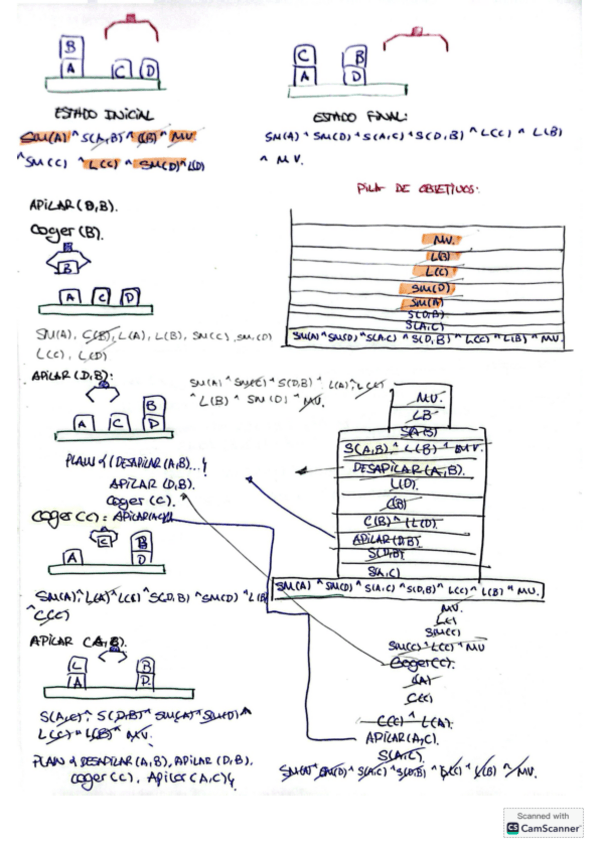 B
A
C
D
ESTADO INICIAL
SM(A) ^ S(A,B) ^ L(B) ^ MV
^ SM(C) ^ L(C) ^ SM(D) ^ L(D)
C
A
B
D
ESTADO FINAL:
SM(A) ^ SM(D) ^ S(A,C) ^ S(D,B) ^ L(C) ^ L(B)
^ MV.
PILA DE OBJETIVOS:
MV.
L(B)
L(C)
SM(D)
SM(A)
S(D,B)
S(A,C)
SM(A) ^ SM(D) ^ S(A,C) ^ S(D,B) ^ L(C) ^ L(B) ^ MV.
APILAR (D,B).
Coger (B).
B
A
C
D
SM(A), C(B), L(A), L(B), SM(C), SM(D)
L(C), L(D)
APILAR (D,B):
SM(A) ^ SM(C) ^ S(D,B) ^ L(A) ^ L(C)
^ L(B) ^ SM(D) ^ MV.
A
C
B
D
PLAN { (DESAPILAR (A,B)...}
APILAR (D,B).
Coger (C).
Coger (C): APILAR(A,C)
C
A
B
D
SM(A) ^ L(A) ^ L(C) ^ S(D,B) ^ SM(D) ^ L(B)
^ C(C)
APILAR (A,B).
L
A
B
D.
S(A,C) ^ S(D,B) ^ SM(A) ^ SM(D) ^
L(C) ^ L(B) ^ MV.
PLAN { DESAPILAR (A,B), APILAR (D,B).
Coger (C), Apilar (A,C) }
MV.
LB
S(A,B)
S(A,B) ^ L(B) ^ MV.
DESAPILAR (A,B).
L(D)
C(B)
C(B) ^ L(D).
APILAR (D,B)
S(D,B)
S(A,C)
SM(A) ^ SM(D) ^ S(A,C) ^ S(D,B) ^ L(C) ^ L(B) ^ MV.
MV.
L(C)
SM(C)
SM(C) ^ L(C) ^ MV
Coger (C).
L(A)
C(C)
C(C) ^ L(A).
APILAR (A,C).
S(A,C).
SM(A) ^ SM(D) ^ S(A,C) ^ S(D,B) ^ L(C) ^ L(B) ^ MV.
Scanned with
CS CamScanner